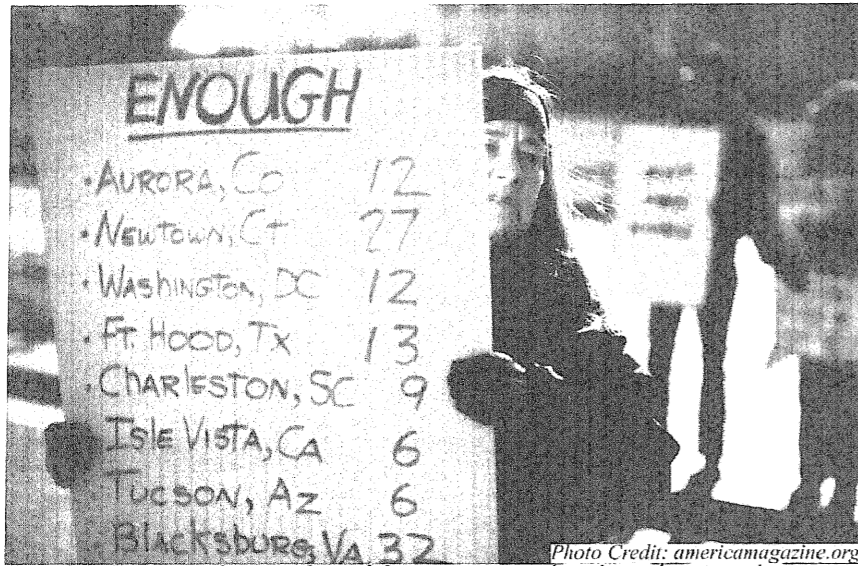 ENOUGH
• AURORA, CO 12
• NEWTOWN, Ct 27
• WASHINGTON, DC 12
• FT. HOOD, TX 13
• CHARLESTON, SC 9
• ISLE VISTA, CA 6
• TUCSON, AZ 6
• BLACKSBURG, VA 32
Photo Credit: americamagazine.org